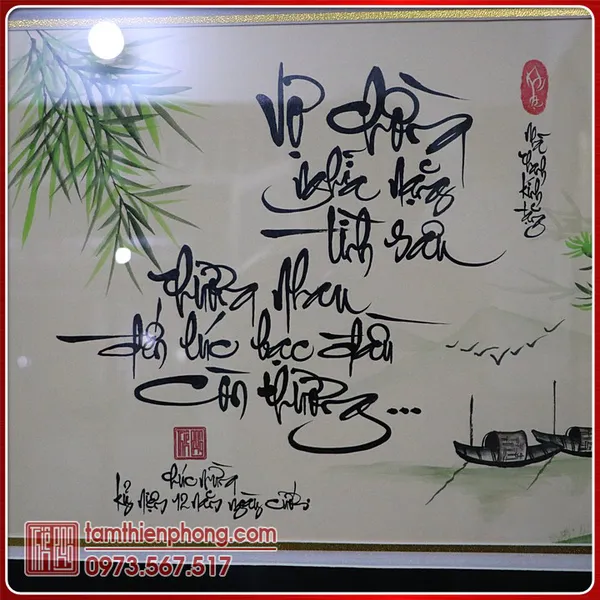 Vợ chồng
nghĩa nặng
tình sâu
thương nhau
đến lúc bạc đầu
còn thương...
chúc mừng
kỷ niệm 12 năm ngày cưới
kính tặng
tamthienphong.com
0973.567.517